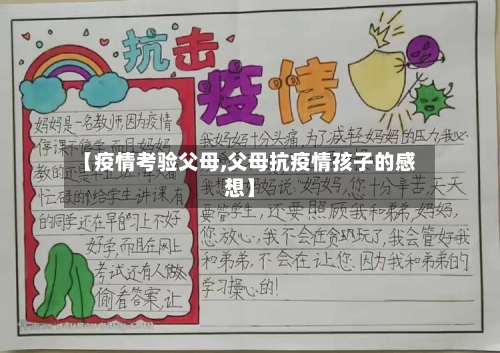 抗击
疫情
妈妈是一名教师,因为疫情
【疫情考验父母,父母抗疫情孩子的感
想】
忙碌的给学生讲课,有
的同学还在早自习上不好
好学,而且在网上
考试还有人做
偷看答案,让
我妈妈十分头痛,为了减轻妈妈的压力我必
我想 妈妈说:"妈妈,您十分辛苦,天天
要管学生,还要照顾我和弟弟,妈妈,
您放心,我不会在贪玩了,我会管好我
和弟弟,不会在让您因为我和弟弟的
学习操心的!